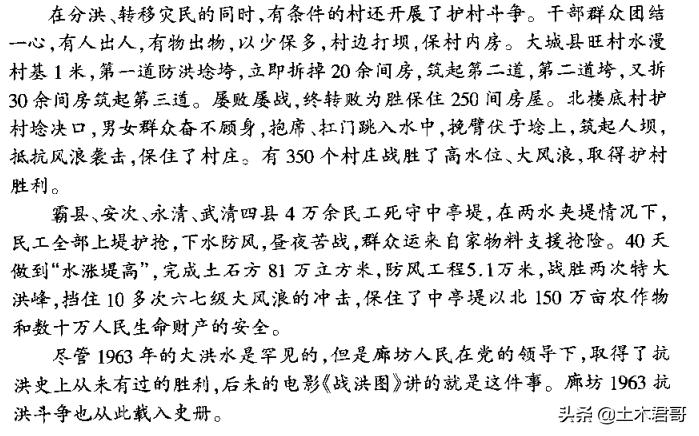 在分洪、转移灾民的同时,有条件的村还开展了护村斗争。干部群众团结
一心,有人出人,有物出物,以少保多,村边打坝,保村内房。大城县旺村水漫
村基1米,第一道防洪埝垮,立即拆掉20余间房,筑起第二道,第二道垮,又拆
30余间房筑起第三道。屡败屡战,终转败为胜保住250间房屋。北楼底村护
村埝决口,男女群众奋不顾身,抱席、扛门跳入水中,挽臂伏于埝上,筑起人坝,
抵抗风浪袭击,保住了村庄。有350个村庄战胜了高水位、大风浪,取得护村
胜利。
霸县、安次、永清、武清四县4万余民工死守中亭堤,在两水夹堤情况下,
民工全部上堤护抢,下水防风,昼夜苦战,群众运来自家物料支援抢险。40天
做到“水涨堤高”,完成土石方81万立方米,防风工程5.1万米,战胜两次特大
洪峰,挡住10多次六七级大风浪的冲击,保住了中亭堤以北150万亩农作物
和数十万人民生命财产的安全。
尽管1963年的大洪水是罕见的,但是廊坊人民在党的领导下,取得了抗
洪史上从未有过的胜利,后来的电影《战洪图》讲的就是这件事。廊坊1963抗
洪斗争也从此载入史册。
头条@土木君哥